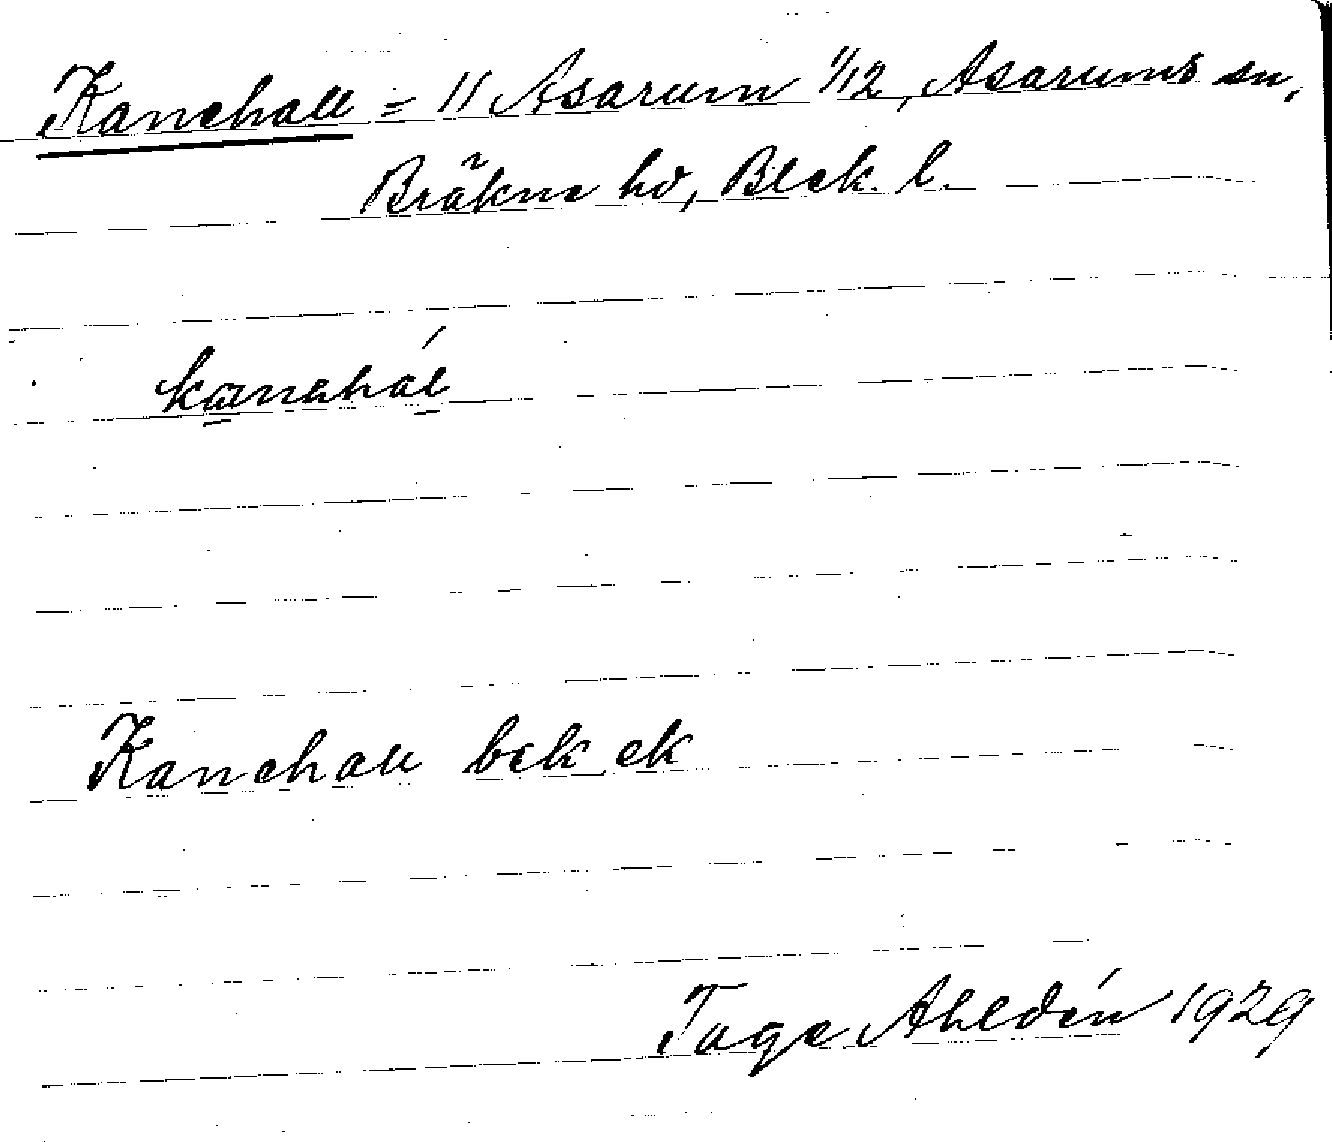 Kanehall = 11 Asarum 1/12, Asarums sn,
Bräkne hd, Blek. l.
kanehál
Kanehall bek ek
Tage Ahldén 1929